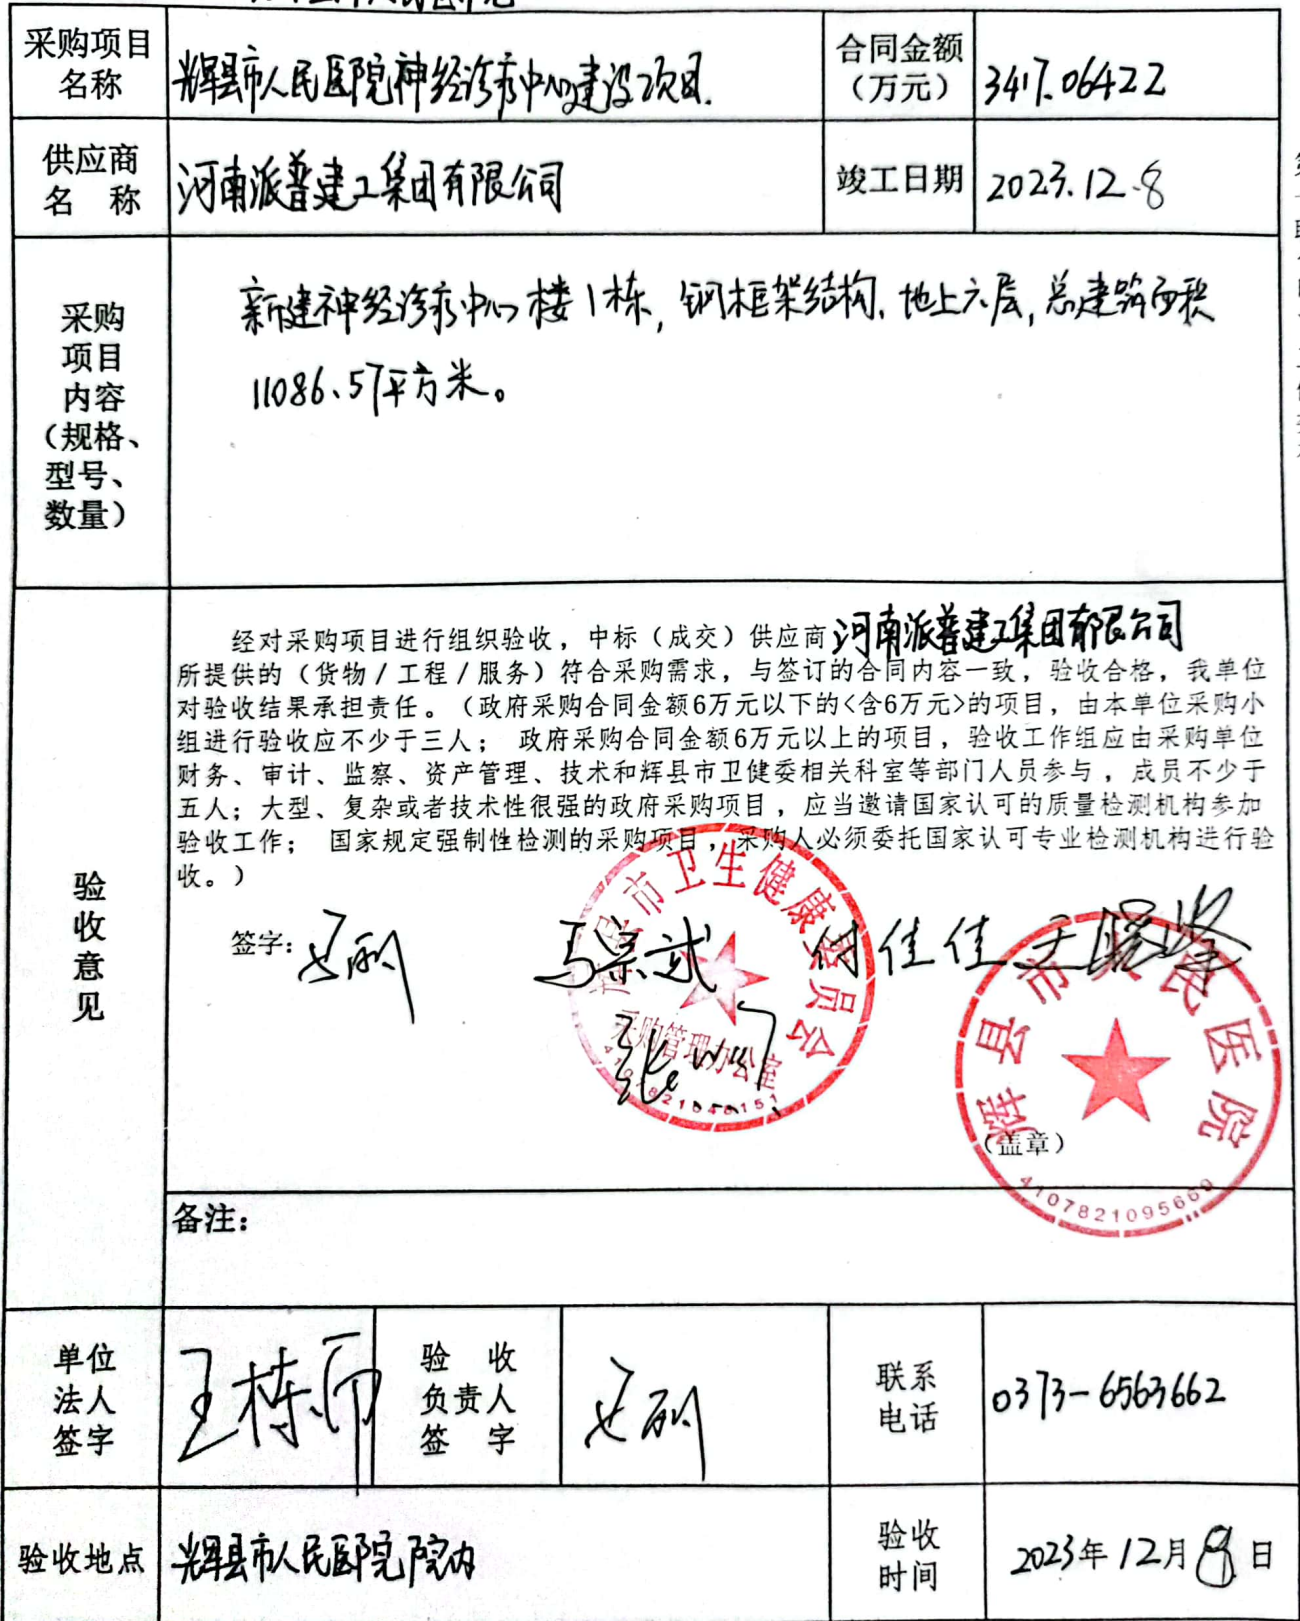 采购项目
名称
辉县市人民医院神经诊疗中心建设项目.
合同金额
（万元）
3417.06422
供应商
名 称
河南派普建工集团有限公司
竣工日期
2023.12.8
采购
项目
内容
（规格、
型号、
数量）
新建神经诊疗中心楼1栋,钢框架结构,地上六层,总建筑面积
11086.57平方米。
验
收
意
见
经对采购项目进行组织验收，中标（成交）供应商河南派普建工集团有限公司
所提供的（货物/工程/服务）符合采购需求，与签订的合同内容一致，验收合格，我单位
对验收结果承担责任。（政府采购合同金额6万元以下的<含6万元>的项目，由本单位采购小
组进行验收应不少于三人； 政府采购合同金额6万元以上的项目，验收工作组应由采购单位
财务、审计、监察、资产管理、技术和辉县市卫健委相关科室等部门人员参与，成员不少于
五人；大型、复杂或者技术性很强的政府采购项目，应当邀请国家认可的质量检测机构参加
验收工作； 国家规定强制性检测的采购项目，采购人必须委托国家认可专业检测机构进行验
收。）
签字：
付佳佳
辉县市卫生健康委员会
采购管理办公室
辉县市人民医院
（盖章）
4107821095660
备注：
单位
法人
签字
验 收
负责人
签 字
联系
电话
0373-6563662
验收地点
辉县市人民医院院内
验收
时间
2023年12月8日